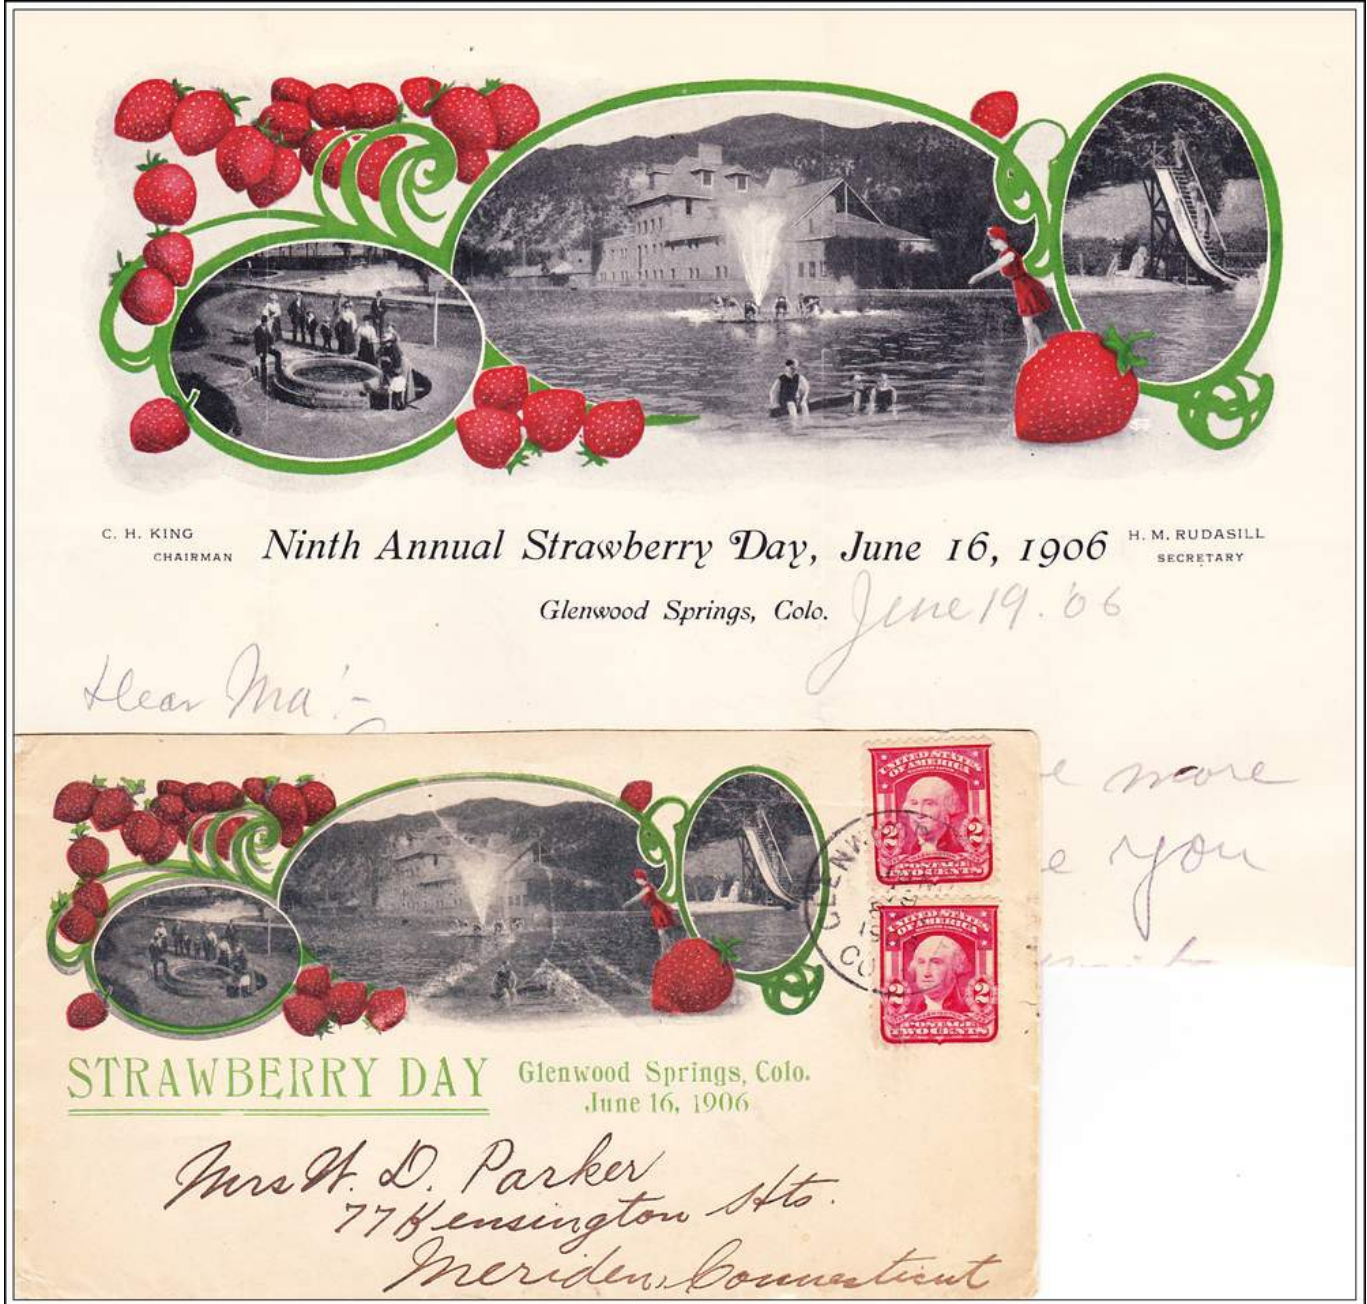 C. H. KING
CHAIRMAN
Ninth Annual Strawberry Day, June 16, 1906
H. M. RUDASILL
SECRETARY
Glenwood Springs, Colo.
June 19. '06
Dear Ma:-
more
you
UNITED STATES
OF AMERICA
2 2
POSTAGE
TWO CENTS
GLENW
CO
UNITED STATES
OF AMERICA
2 2
POSTAGE
TWO CENTS
STRAWBERRY DAY
Glenwood Springs, Colo.
June 16, 1906
Mrs W. D. Parker
77 Kensington Hts.
Meriden, Connecticut